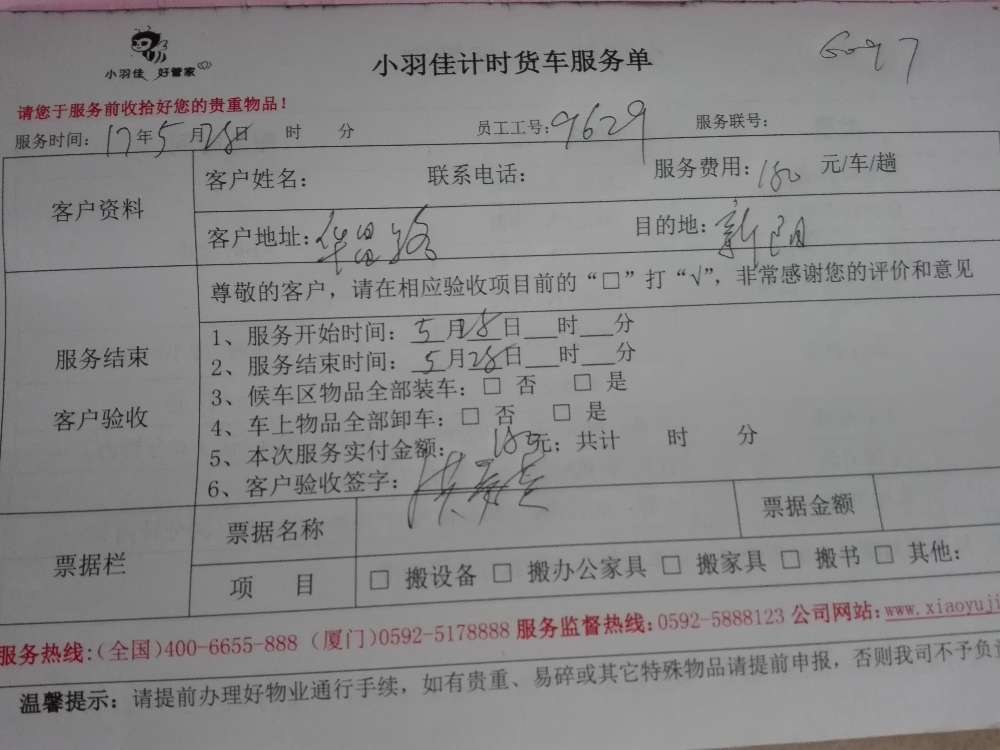 小羽佳 好管家
小羽佳计时货车服务单
6097
请您于服务前收拾好您的贵重物品!
服务时间: 17年5月28日 时 分 员工工号: 9629 服务联号:
客户资料
客户姓名: 联系电话: 服务费用: 180 元/车/趟
客户地址: 华昌路 目的地: 新阳
服务结束
客户验收
尊敬的客户,请在相应验收项目前的“□”打“√”,非常感谢您的评价和意见
1、服务开始时间: 5月28日___时___分
2、服务结束时间: 5月28日___时___分
3、候车区物品全部装车: □ 否 □ 是
4、车上物品全部卸车: □ 否 □ 是
5、本次服务实付金额: 180元; 共计 时 分
6、客户验收签字:
票据栏
票据名称 票据金额
项 目 □ 搬设备 □ 搬办公家具 □ 搬家具 □ 搬书 □ 其他:
服务热线:(全国)400-6655-888 (厦门)0592-5178888 服务监督热线:0592-5888123 公司网站:www.xiaoyuji
温馨提示: 请提前办理好物业通行手续,如有贵重、易碎或其它特殊物品请提前申报,否则我司不予负责